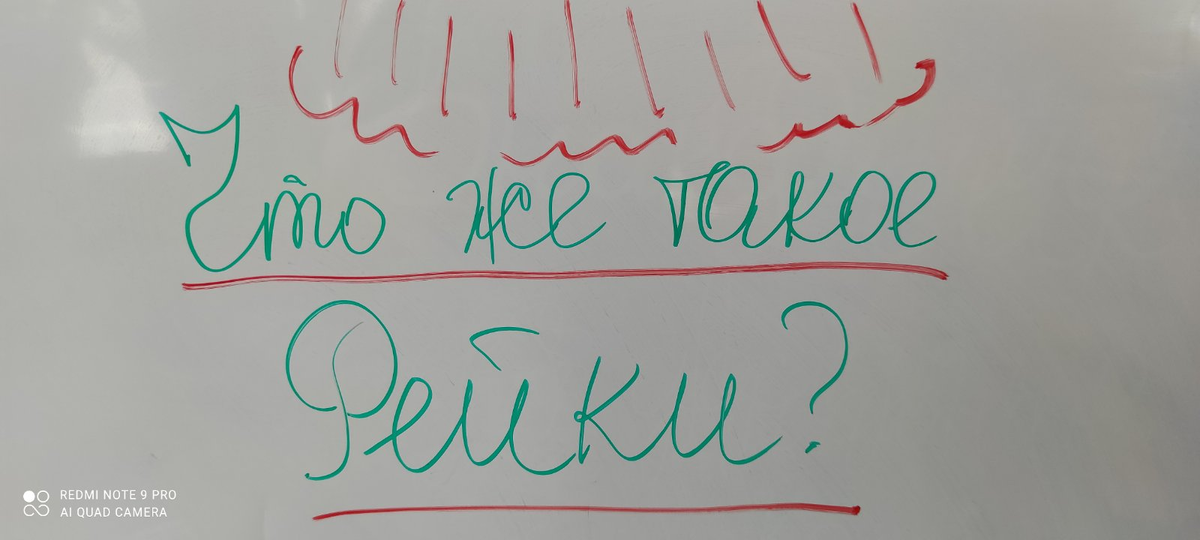 Что же такое
Рейки?
REDMI NOTE 9 PRO
AI QUAD CAMERA